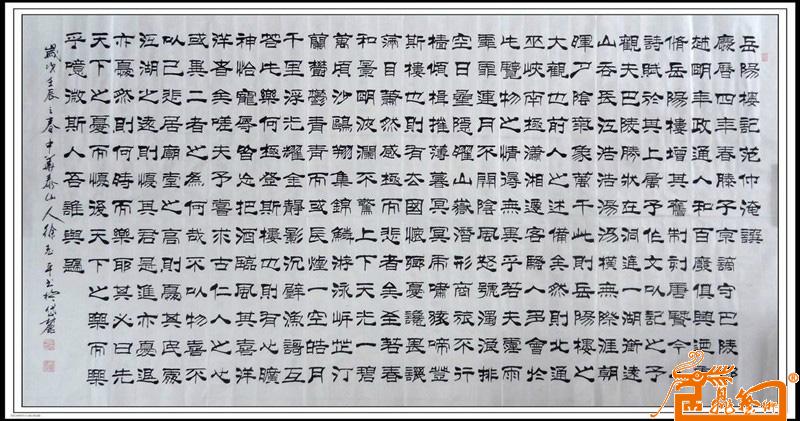 岳陽樓記范仲淹譔
慶曆四年春滕子京謫守巴陵郡
越明年政通人和百廢俱興迺重
脩岳陽樓增其舊制刻唐賢今人
詩賦於其上屬予作文以記之予
觀夫巴陵勝狀在洞庭一湖銜遠
山吞長江浩浩湯湯橫無際涯朝
暉夕陰氣象萬千此則岳陽樓之
大觀也前人之述備矣然則北通
巫峽南極瀟湘遷客騷人多會於
此覽物之情得無異乎若夫霪雨
霏霏連月不開陰風怒號濁浪排
空日星隱曜山嶽潛形商旅不行
檣傾楫摧薄暮冥冥虎嘯猿啼登
斯樓也則有去國懷鄉憂讒畏譏
滿目蕭然感極而悲者矣至若春
和景明波瀾不驚上下天光一碧
萬頃沙鷗翔集錦鱗游泳岸芷汀
蘭鬱鬱青青而或長煙一空皓月
千里浮光耀金靜影沉璧漁謌互
答此樂何極登斯樓也則有心曠
神怡寵辱皆忘把酒臨風其喜洋
洋者矣嗟夫予嘗求古仁人之心
或異二者之為何哉不以物喜不
以己悲居廟堂之高則憂其民處
江湖之遠則憂其君是進亦憂退
亦憂然則何時而樂耶其必曰先
天下之憂而憂後天下之樂而樂
乎噫微斯人吾誰與歸
歲次壬辰之春中華泰山人徐志平書於岱麓